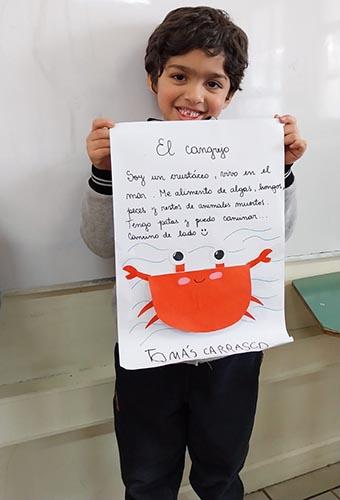 El cangrejo
Soy un crustáceo, vivo en el
mar. Me alimento de algas, hongos
peces y restos de animales muertos.
Tengo patas y puedo caminar...
Camino de lado
TOMÁS CARRASCO